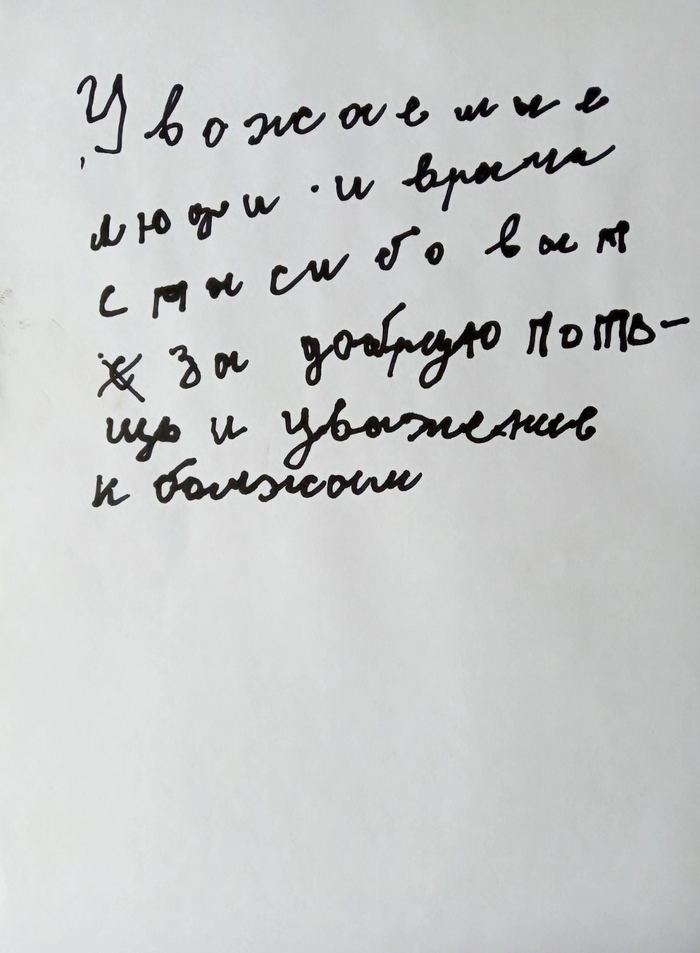 Уважаемие
люди и врачи
спасибо вам
за добрую помо-
щь и уважение
к бомжам